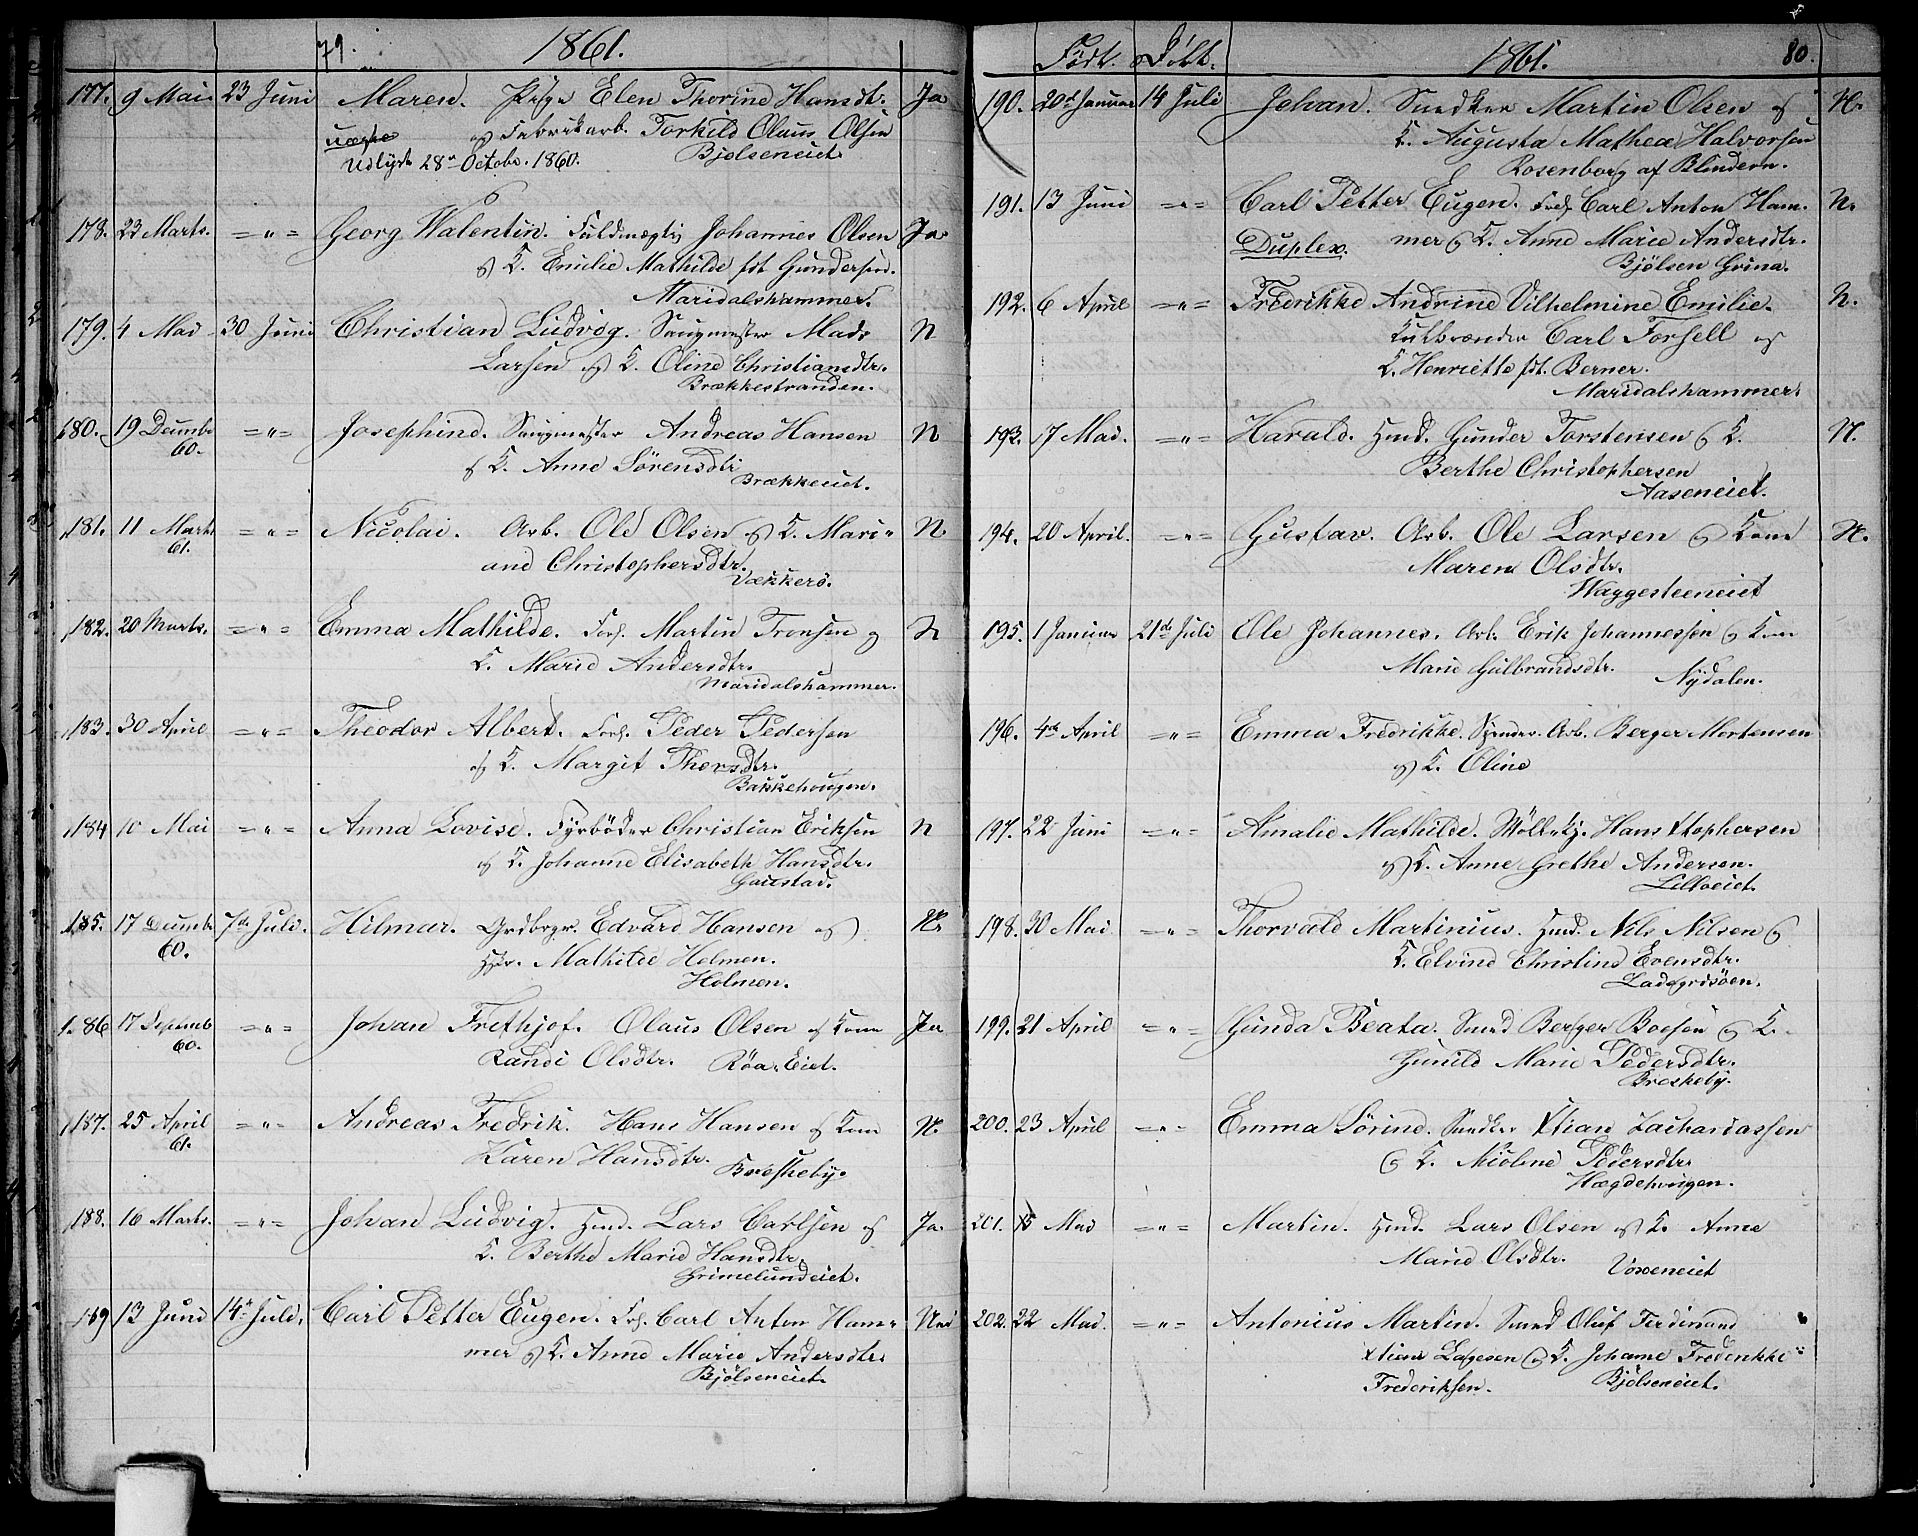 79.
1861.
177. 9 Mai 23 Juni Maren. Pige Elen Thorine Hansdtr. Ja
uægte og Fabrikarb. Torkild Olaus Olsen
Udlyst 28de Octobr. 1860. Bjølseneiet
178. 23 Marts. =„= Georg Walentin. Fuldmægtig Johannes Olsen Ja
og K. Emilie Mathilde fdt Gundersen.
Maridalshammer.
179. 4 Mai 30 Juni Christian Ludvig. Saugmester Mads N
Larsen og K. Oline Christiansdtr.
Brækkestranden.
180. 19 Decembr =„= Josephine. Saugmester Andreas Hansen N
60. og K. Anne Sörensdtr
Brækkeeiet.
181. 11 Marts =„= Nicolai. Arb. Ole Olsen og K. Mari= N
61. ane Christophersdtr.
Vækkerö.
182. 20 Marts. =„= Emma Mathilde. Forh. Martin Tronsen og N
K. Marie Andersdtr.
Maridalshammer.
183. 30 April =„= Theodor Albert. Forh. Peder Pedersen
og K. Margit Thorsdtr.
Bakkehougen.
184 10 Mai =„= Anna Lovise. Fyrböder Christian Eriksen N
og K. Johanne Elisabeth Hansdtr.
Gaustad.
185. 17 Decembr 7de Juli. Hilmar. Grdbrgr. Edvard Hansen og N.
60. Hstr. Mathilde Holmen.
Holmen.
186 17 Septemb =„= Johan Frethjof. Olaus Olsen og Kone Ja
60. Randi Olsdtr. Röa. Eiet.
187. 25 April =„= Andreas Fredrik. Hans Hansen og Kone N.
61. Karen Hansdtr. Breskeby.
188. 16 Marts. =„= Johan Ludvig. Hmd. Lars Carlsen og Ja.
K. Berthe Marie Hansdtr
Grimelundeiet.
189 13 Juni 14de Juli. Carl Petter Eugen. Fab. Carl Anton Ham= Nei
mer og K. Anne Marie Andersdtr.
Bjölseneiet.
Födt. Döbt. 1861. 80.
190. 20de Januar 14 Juli Johan. Snedker Martin Olsen og N.
K. Augusta Mathea Halvorsen
Rosenborg af Blindern.
191. 13 Juni =„= Carl Petter Eugen. Carl Anton Ham= N.
Duplex. mer og K. Anne Marie Andersdtr.
Bjölsen Grina.
192. 6 April =„= Fredrikke Andrine Vilhelmine Emilie. N.
Kulbrænder Carl Forsell og
K. Henriette fdt. Berner.
Maridalshammer.
193. 17 Mai. =„= Harald. Hmd. Gunder Torstensen og K. N.
Berthe Christophersen
Aaseneiet.
194. 20 April. =„= Gustav. Arb. Ole Larsen og Kone N.
Maren Olsdtr.
Waggesteeneiet
195. 1 Januar 21de Juli Ole Johannes. Arb. Erik Johannessen og Kone
Marie Gulbrandsdtr. Nydalen.
196. 4de April =„= Emma Fredrikke. Spinder. Arb. Berger Mortensen
og K. Oline
197. 22 Juni =„= Amalie Mathilde. Hans Xtophersen
og K. Anne Grethe Andersen.
Lilloeiet.
198. 30 Mai =„= Thorvald Martinius. Hmd. Nils Nilsen og
K. Elvine Christine Evensdtr.
Ladegrdsöen.
199. 21 April =„= Gunda Beata. Smed Berger Boesen og K.
Gunild Marie Pedersdtr.
Breskeby.
200. 23 April =„= Emma Sörine. Snedker Xtian Zachariassen
og K. Nicoline Pedersdtr.
Hægdehougen.
201. 15 Mai =„= Martin. Hmd. Lars Olsen og K. Anne
Marie Olsdtr. Voxeneiet
202. 22 Mai. =„= Antonius Martin. Smed Oluf Ferdinand
Xtian Lagesen og K. Johanne Frederikke
Frederiksen. Bjölseneiet.